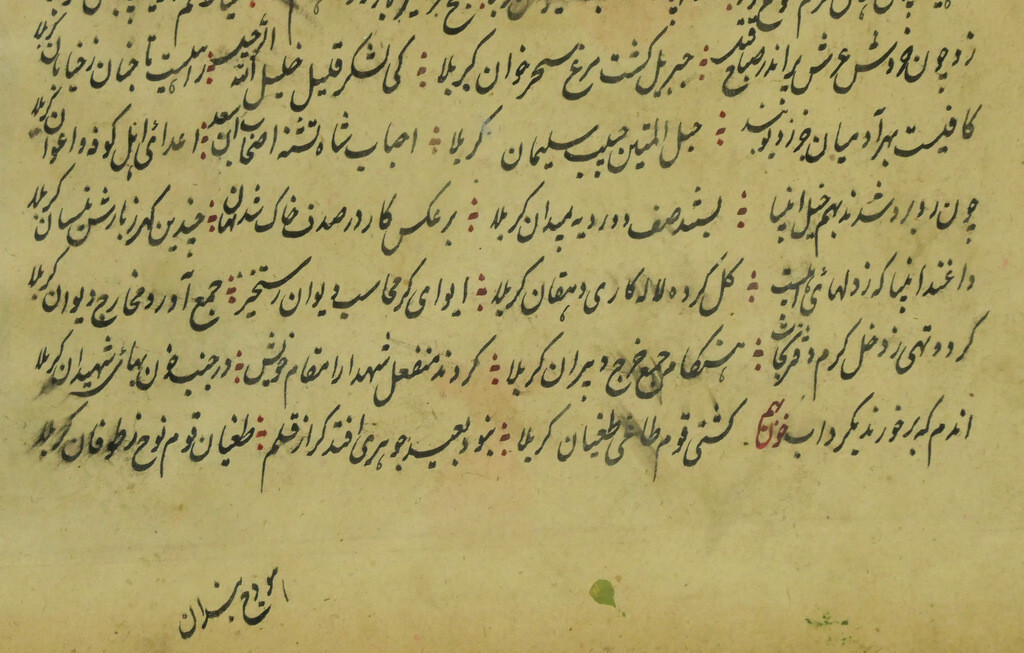 زد چون خروش عرش پر اندر صباح قتل : جبریل گشت مرغ سحرخوان کربلا : کی لشکر قلیل خلیل الله الرحیل : راهیست تا جنان ز خیابان کربلا
کافیست بهر آدمیان خود بود سند : حبل المتین جیب سلیمان کربلا : احباب شاه تشنه اصحاب ابن سعد : اعدای اهل کوفه و اعوان کربلا
چون روبرو شدند بهم خیل انبیا : بستند صف دو رویه بمیدان کربلا : بر عکس کار در صدف خاک شد نهان : چندین گهر ز بارش نیسان کربلا
داغند انبیا که ز دلهای اهلبیت : گل کرده لاله کاری دهقان کربلا : ایوای گر محاسب دیوان رستخیز : جمع آورد مخارج دیوان کربلا
گردد تهی ز دخل کرم دفتر نجات : هنگام جمع خرج دبیران کربلا : کردند منفعل شهدا را مقام خویش : در جنب خون بهای شهیدان کربلا
اندم که برخورند بگرداب خون بهم کشتی قوم طاغی طغیان کربلا : نبود بعید جوهری افتد گر از قلم : طغیان قوم نوح ز طوفان کربلا